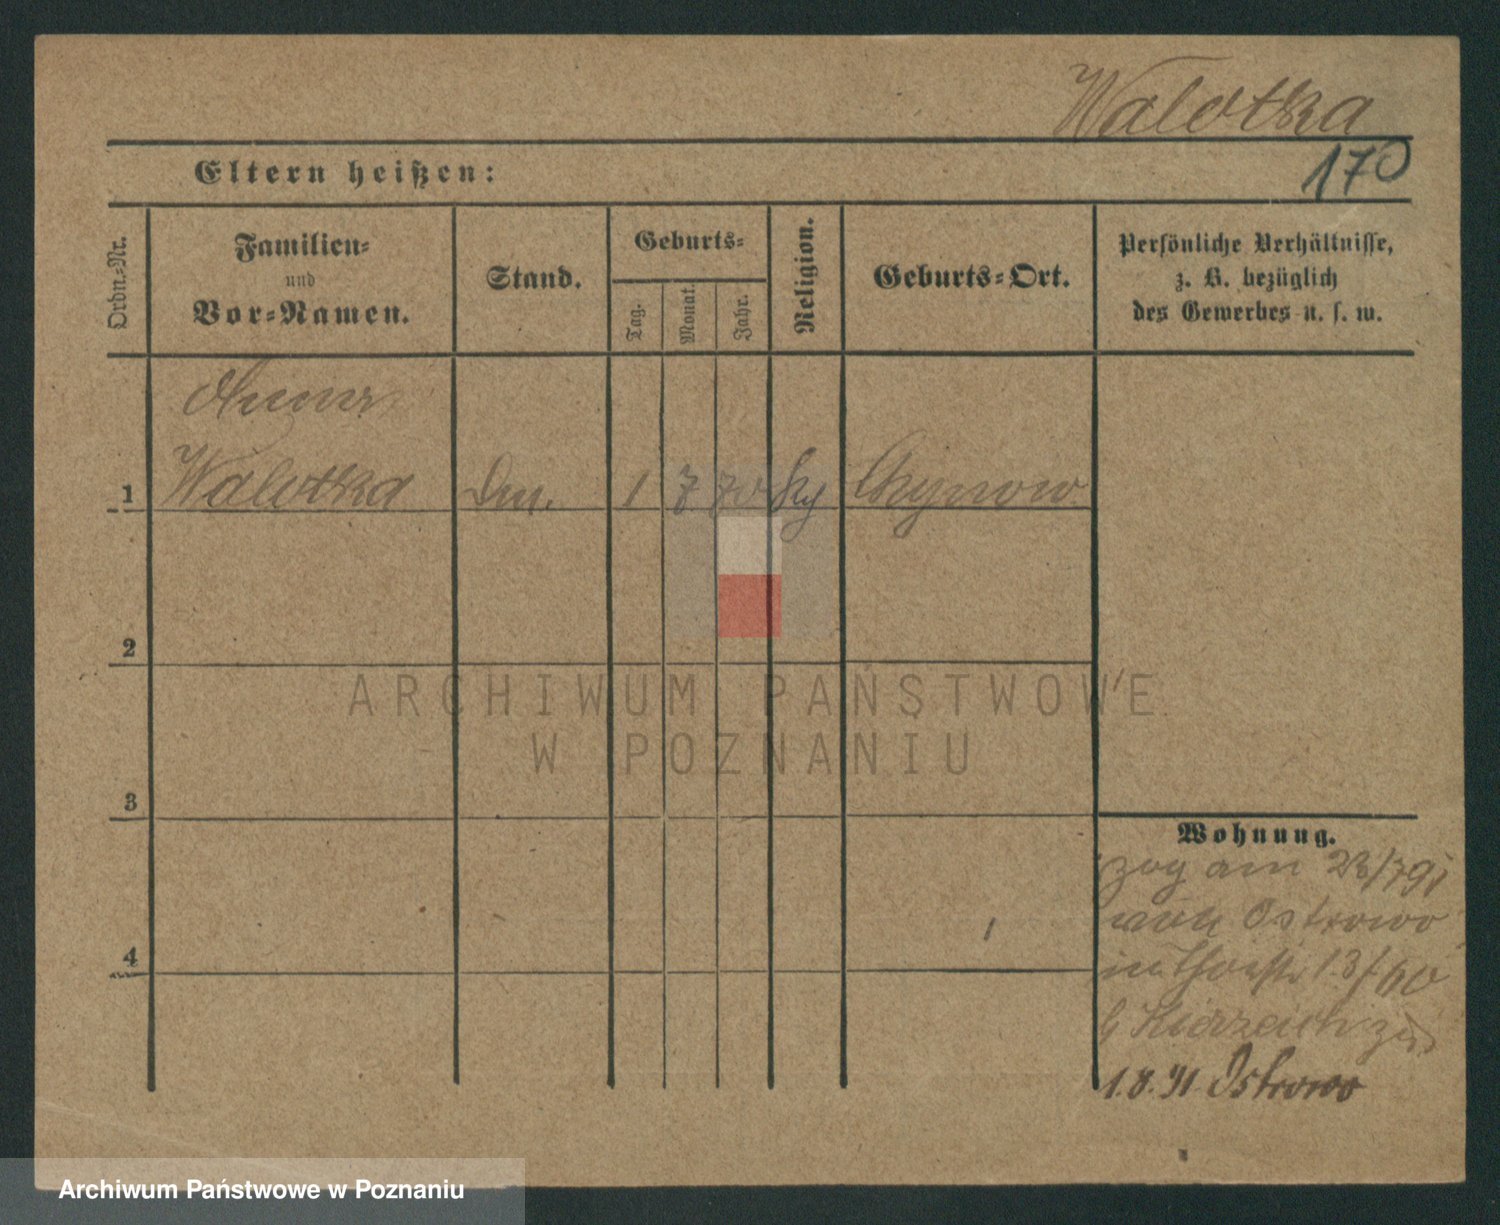 Walotka
170
Eltern heißen:
Ordn.=Nr.
Familien=
und
Vor=Namen.
Stand.
Geburts=
Tag.
Monat.
Jahr.
Religion.
Geburts=Ort.
Persönliche Verhältnisse,
z. B. bezüglich
des Gewerbes u. s. w.
Anna
1 Walotka 1 7 70 Chynow
2
3
4
Wohnung.
zog am
von Ostrowo
in 13/
1.8.91. Ostrowo
ARCHIWUM PAŃSTWOWE
W POZNANIU
Archiwum Państwowe w Poznaniu